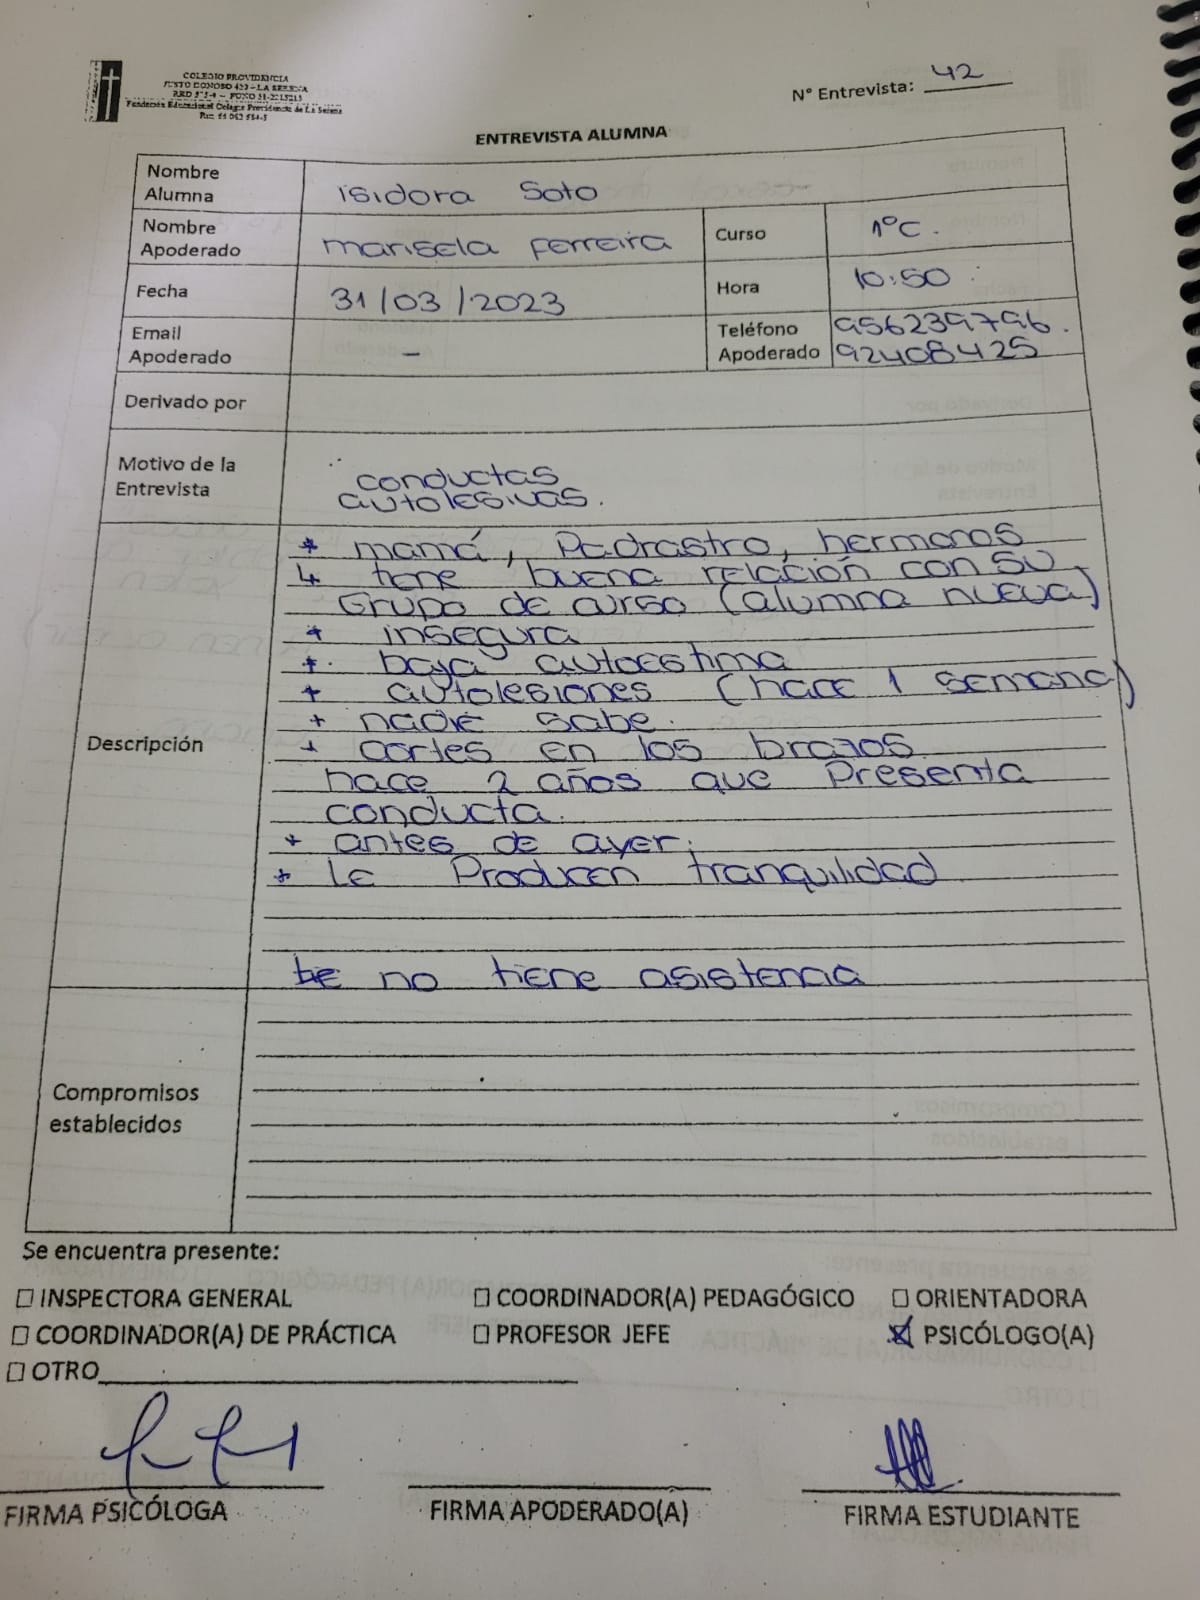 COLEGIO PROVIDENCIA
JUSTO DONOSO 420 – LA SERENA
Fundación Educacional Colegio Providencia de La Serena
N° Entrevista: 42
ENTREVISTA ALUMNA
Nombre Alumna isidora Soto
Nombre Apoderado marisela Ferreira Curso 1°C.
Fecha 31/03/2023 Hora 10:50
Email Apoderado - Teléfono Apoderado 956239796. 92408425
Derivado por
Motivo de la Entrevista conductas autolesivas.
Descripción
* mamá, Padrastro, hermanos
↳ tiene buena relación con su
Grupo de curso (alumna nueva)
* insegura
* baja autoestima
* autolesiones (hace 1 semana)
+ nadie sabe.
+ cortes en los brazos
hace 2 años que Presenta
conducta.
+ antes de ayer.
* le Producen tranquilidad
no tiene asistencia
Compromisos establecidos
Se encuentra presente:
☐ INSPECTORA GENERAL ☐ COORDINADOR(A) PEDAGÓGICO ☐ ORIENTADORA
☐ COORDINADOR(A) DE PRÁCTICA ☐ PROFESOR JEFE ☒ PSICÓLOGO(A)
☐ OTRO
FIRMA PSICÓLOGA FIRMA APODERADO(A) FIRMA ESTUDIANTE